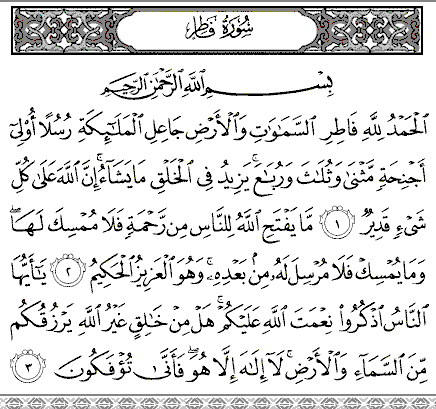 سُورَةُ فَاطِرٍ
بِسْمِ ٱللَّهِ ٱلرَّحْمَٰنِ ٱلرَّحِيمِ
ٱلْحَمْدُ لِلَّهِ فَاطِرِ ٱلسَّمَٰوَٰتِ وَٱلْأَرْضِ جَاعِلِ ٱلْمَلَٰٓئِكَةِ رُسُلًا أُو۟لِىٓ
أَجْنِحَةٍ مَّثْنَىٰ وَثُلَٰثَ وَرُبَٰعَ ۚ يَزِيدُ فِى ٱلْخَلْقِ مَا يَشَآءُ ۚ إِنَّ ٱللَّهَ عَلَىٰ كُلِّ
شَىْءٍ قَدِيرٌ ١ مَّا يَفْتَحِ ٱللَّهُ لِلنَّاسِ مِن رَّحْمَةٍ فَلَا مُمْسِكَ لَهَا ۖ
وَمَا يُمْسِكْ فَلَا مُرْسِلَ لَهُۥ مِنۢ بَعْدِهِۦ ۚ وَهُوَ ٱلْعَزِيزُ ٱلْحَكِيمُ ٢ يَٰٓأَيُّهَا
ٱلنَّاسُ ٱذْكُرُوا۟ نِعْمَتَ ٱللَّهِ عَلَيْكُمْ ۚ هَلْ مِنْ خَٰلِقٍ غَيْرُ ٱللَّهِ يَرْزُقُكُم
مِّنَ ٱلسَّمَآءِ وَٱلْأَرْضِ ۚ لَآ إِلَٰهَ إِلَّا هُوَ ۖ فَأَنَّىٰ تُؤْفَكُونَ ٣